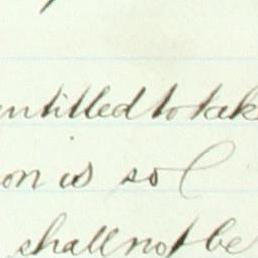 entitled to take
on is so
shall not be